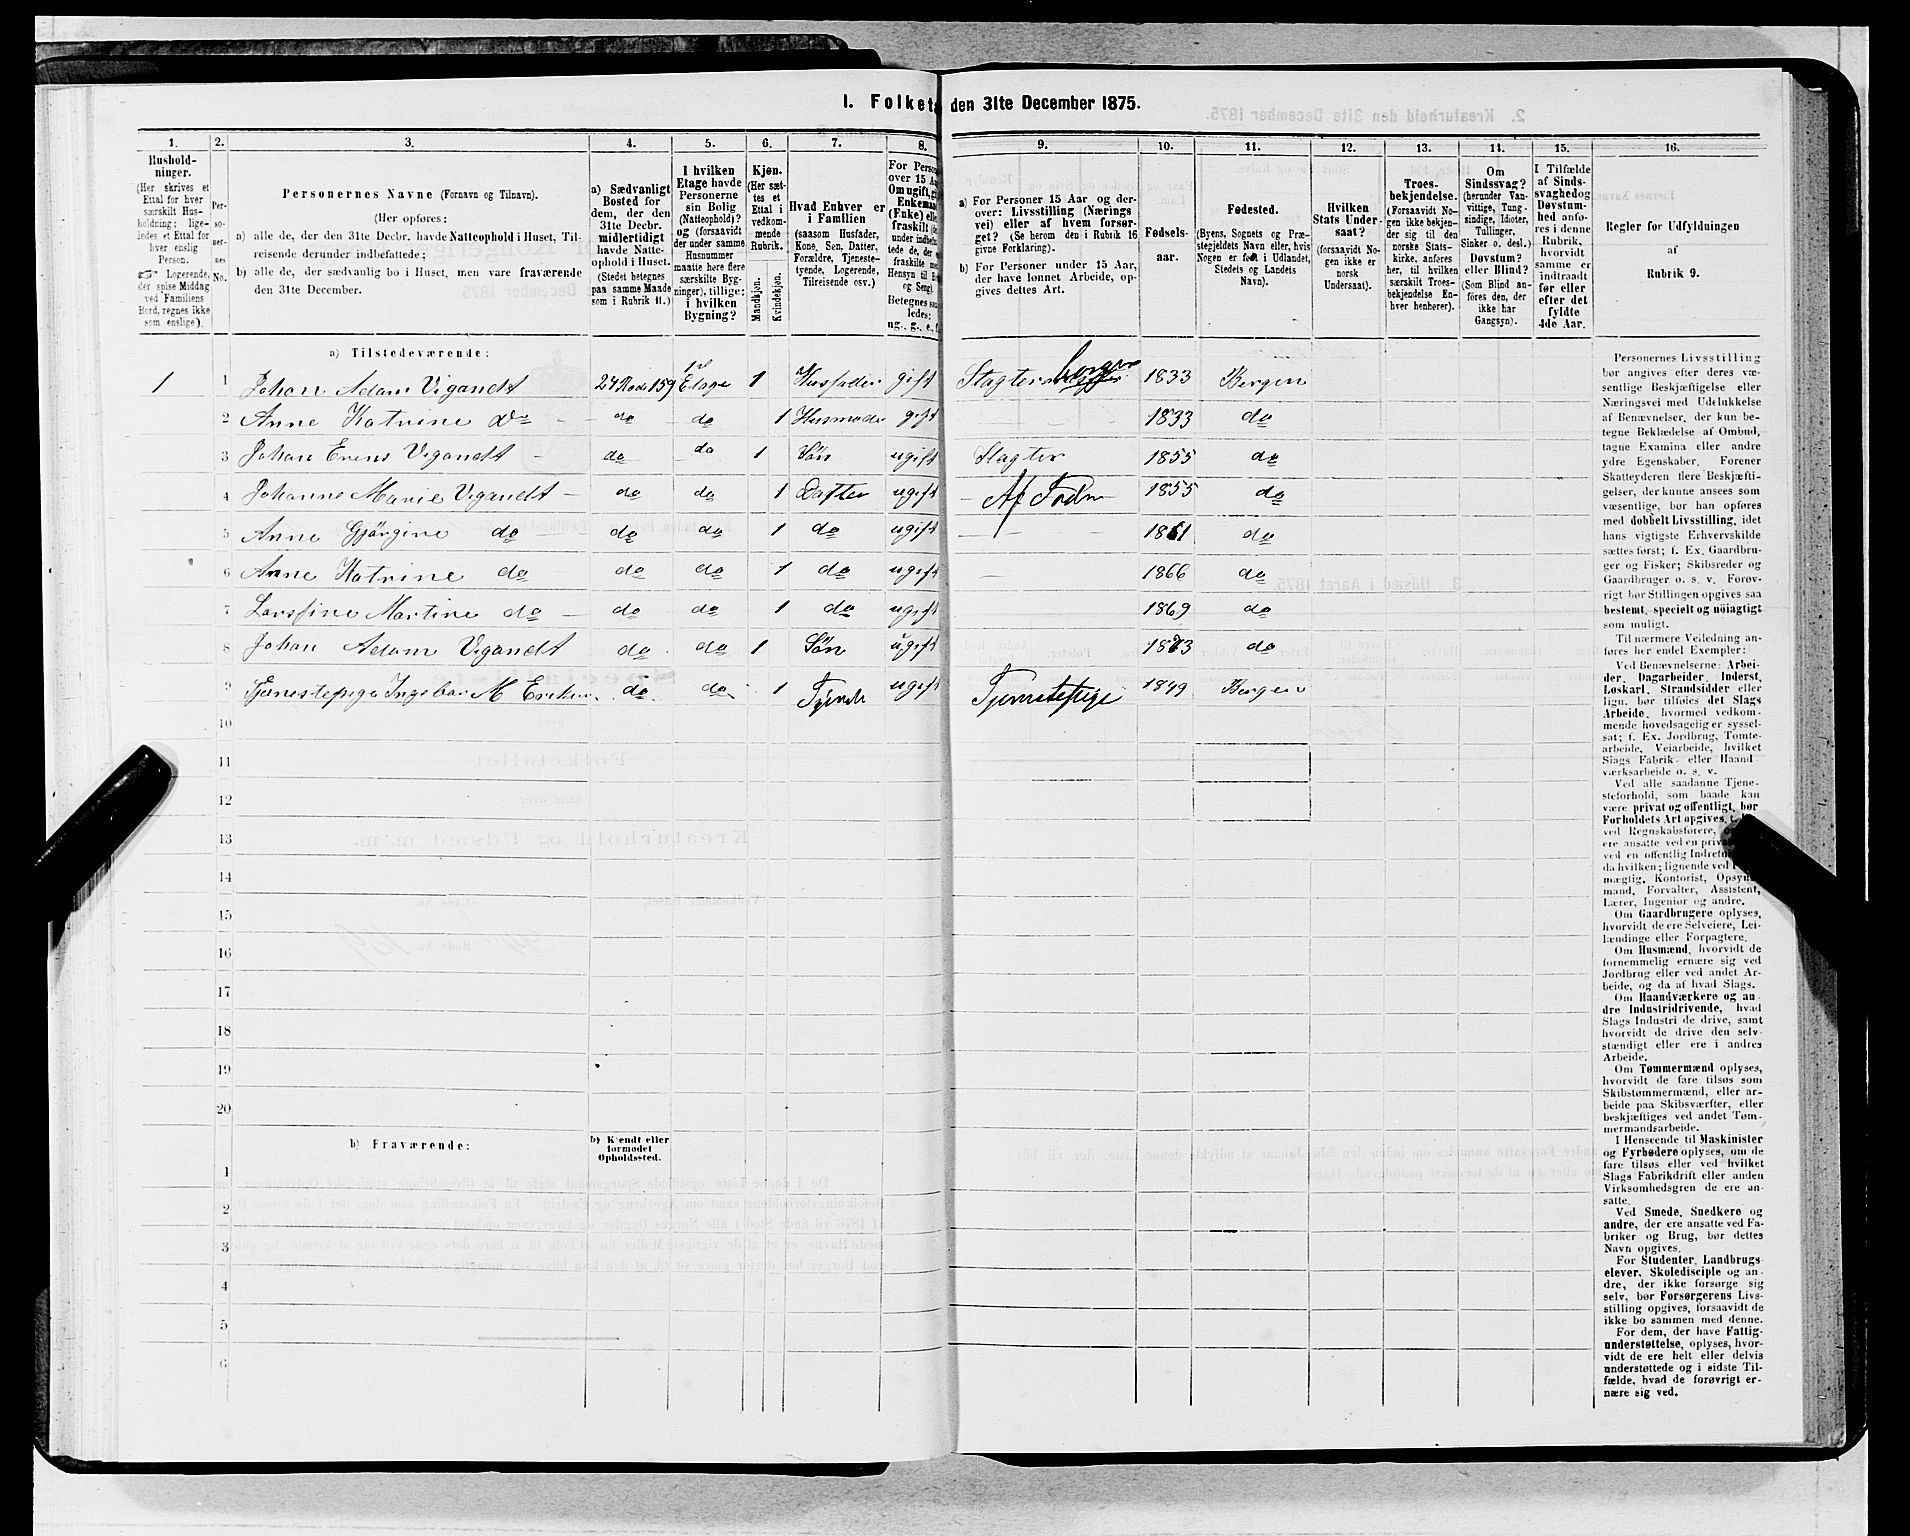 I. Folketæ den 31te December 1875.
1. 2. 3. 4. 5. 6. 7. 8. 9. 10. 11. 12. 13. 14. 15. 16.
Hushold-
ninger.
(Her skrives et
Ettal for hver
særskilt Hus-
holdning; lige-
ledes et Ettal for
hver enslig
Person.
☞ Logerende,
der spise Middag
ved Familiens
Bord, regnes ikke
som enslige).
Per-
so-
ner-
nes
No.
Personernes Navne (Fornavn og Tilnavn).
(Her opføres:
a) alle de, der den 31te Decbr. havde Natteophold i Huset, Til-
reisende derunder indbefattede;
b) alle de, der sædvanlig bo i Huset, men vare fraværende
den 31te December.
a) Sædvanligt
Bosted for
dem, der den
31te Decbr.
midlertidigt
havde Natte-
ophold i Huset.
(Stedet betegnes
paa samme Maade
som i Rubrik 11.)
I hvilken
Etage havde
Personerne
sin Bolig
(Natteophold)?
og (forsaavidt
der under samme
Husnummer
maatte høre flere
særskilte Byg-
ninger), tillige:
i hvilken
Bygning?
Kjøn.
(Her sæt-
tes et
Ettal i
vedkom-
mende
Rubrik.
Mandkjøn.
Kvindekjøn.
Hvad Enhver er
i Familien
(saasom Husfader,
Kone, Søn, Datter,
Forældre, Tjeneste-
tyende, Logerende,
Tilreisende osv.)
For Person
over 15 Aa
Om ugift, gi
Enkeman
(Enke) elle
fraskilt
under indbefat-
tede de, de
fraskilte me
Hensyn til B
og Seng).
Betegnes saa
ledes:
ug., g., e., f.
a) For Personer 15 Aar og der-
over: Livsstilling (Nærings
vei) eller af hvem forsør-
get? (Se herom den i Rubrik 16
givne Forklaring).
b) For Personer under 15 Aar,
der have lønnet Arbeide, op-
gives dettes Art.
Fødsels-
aar.
Fødested.
(Byens, Sognets og Præ-
stegjeldets Navn eller, hvis
Nogen er født i Udlandet,
Stedets og Landets
Navn).
Hvilken
Stats Under-
saat?
(forsaavidt No-
gen ikke er
norsk
Undersaat).
Troes-
bekjendelse.
(Forsaavidt No-
gen ikke bekjen-
der sig til den
norske Stats-
kirke, anføres
her, til hvilken
særskilt Troes-
bekjendelse En-
hver henhører).
Om
Sindssvag?
(herunder Van-
vittige, Tung-
sindige, Idioter,
Tullinger,
Sinker o. desl.)
Døvstum?
eller Blind?
(Som Blind an-
føres den, der
ikke har
Gangsyn).
I Tilfælde
af Sinds-
svaghed og
Døvstum-
hed anfø-
res i denne
Rubrik,
hvorvidt
samme er
indtraadt
før eller
efter det
fyldte
4de Aar.
Regler for Udfyldningen
af
Rubrik 9.
a) Tilstedeværende:
1 1 Johan Adam Vigandt 24 Rode 159 1ste Etage 1 Husfader gift Slagter borger 1833 Bergen
2 Anne Katrine do - do do 1 Husmoder gift 1833 do
3 Johan Erens Vigandt - do do 1 Søn ugift Slagter 1855 do
4 Johanne Marie Vigandt - do do 1 Datter ugift Af Fader 1855 do
5 Anne Gjørgine do do do 1 do ugift 1861 do
6 Anne Katrine do do do 1 do ugift 1866 do
7 Larsfine Martine do - do do 1 do ugift 1869 do
8 Johan Adam Vigandt do do 1 Søn ugift 1873 do
9 Tjenestepige Ingebor M do do 1 ugift Tjenestepige 1849 Bergen
10
11
12
13
14
15
16
17
18
19
20
b) Fraværende:
b) Kjendt eller
formodet
Opholdssted.
1
2
3
4
5
6
Personernes Livsstilling
bør angives efter deres væ-
sentlige Beskjæftigelse eller
Næringsvei med Udelukkelse
af Benævnelser, der kun be-
tegne Beklædelse af Ombud,
tagne Examina eller andre
ydre Egenskaber. Forener
Skatteyderen flere Beskjæfti-
gelser, der kunne ansees som
væsentlige, bør han opføres
med dobbelt Livsstilling, idet
hans vigtigste Erhvervskilde
sættes først; f. Ex. Gaardbru-
ger og Fisker; Skibsreder og
Gaardbruger o. s. v. Forøv-
rigt bør Stillingen opgives saa
bestemt, specielt og nøiagtigt
som muligt.
Til nærmere Veiledning an-
føres her endel Exempler:
Ved Benævnelserne: Arbei-
der, Dagarbeider, Inderst,
Løskarl, Strandsidder eller
lign. bør tilføies det Slags
Arbeide, hvormed vedkom-
mende hovedsagelig er syssel-
sat; f. Ex. Jordbrug, Tomte-
arbeide, Veiarbeide, hvilket
Slags Fabrik- eller Haand
værksarbeide o. s. v.
Ved alle saadanne Tjene-
steforhold, som baade kan
være privat og offentligt, bør
Forholdets Art opgives,
ved Regnskabsførere,
ere ansatte ved en priva
ved en offentlig Indretn
da hvilken; lignende ved
mægtig, Kontorist, Opsyns
mand, Forvalter, Assistent,
Lærer, Ingeniør og andre.
Om Gaardbrugere oplyses,
hvorvidt de ere Selveiere, Lei-
lændinge eller Forpagtere.
Om Husmænd, hvorvidt de
fornemmelig ernære sig ved
Jordbrug eller ved andet Ar-
beide, og da af hvad Slags.
Om Haandværkere og an
dre Industridrivende, hvad
Slags Industri de drive, samt
hvorvidt de drive den selv-
stændigt eller ere i andres
Arbeide.
Om Tømmermænd oplyses,
hvorvidt de fare tilsøs som
Skibstømmermænd, eller ar-
beide paa Skibsværfter, eller
beskjæftiges ved andet Tøm-
mermandsarbeide.
I Henseende til Maskinister
og Fyrbødere oplyses, om de
fare tilsøs eller ved hvilket
Slags Fabrikdrift eller anden
Virksomhedsgren de ere an-
satte.
Ved Smede, Snedkere og
andre, der ere ansatte ved Fa-
briker og Brug, bør dettes
Navn opgives.
For Studenter, Landbrugs-
elever, Skoledisciple og an-
dre, der ikke forsørge sig
selv, bør Forsørgerens Livs-
stilling opgives, forsaavidt de
ikke bo sammen med denne.
For dem, der have Fattig-
understøttelse, oplyses, hvor-
vidt de ere helt eller delvis
understøttede og i sidste Til-
fælde, hvad de forøvrigt er-
nære sig ved.